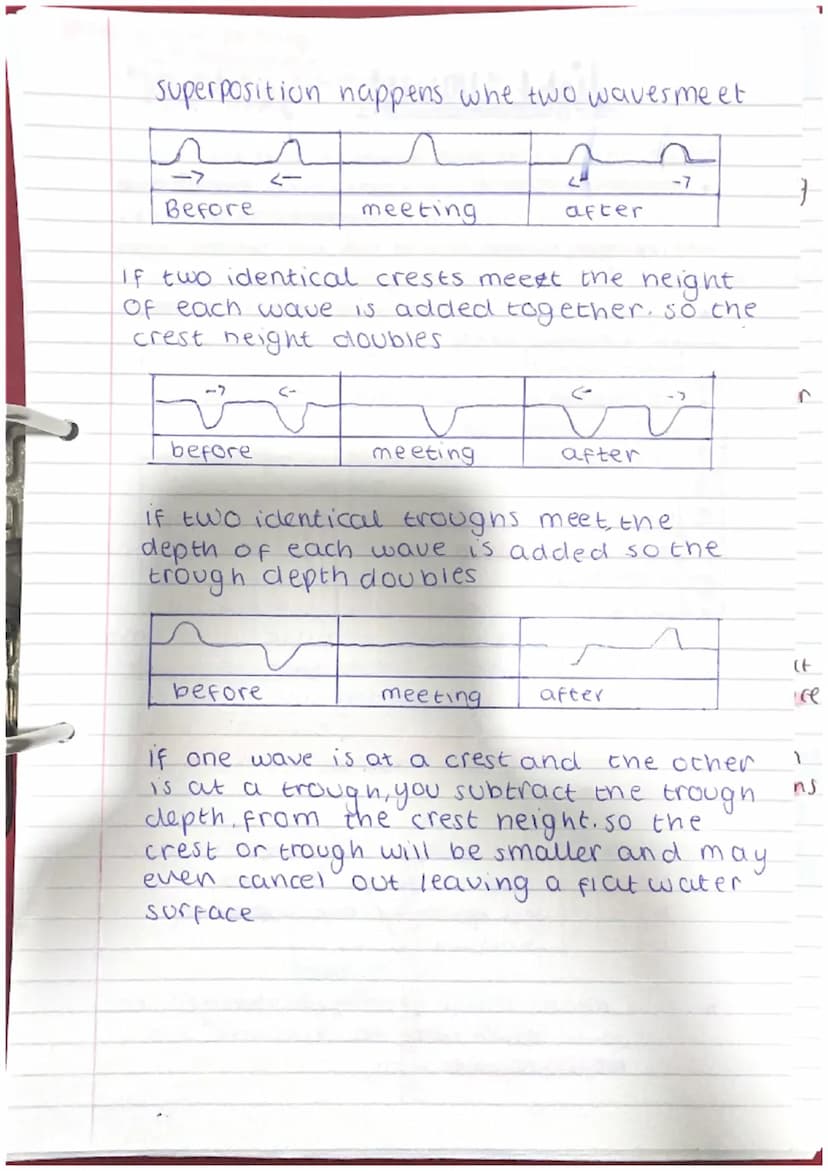 superposition happens whe two waves meet
Before meeting after
If two identical crests meeet the height
of each wave is added together. so the
crest height doubles
before meeting after
if two identical troughs meet, the
depth of each wave is added so the
trough depth doubles
before meeting after
if one wave is at a crest and the other
is at a trough, you subtract the trough
depth. from the crest height. so the
crest or trough will be smaller and may
even cancel out leaving a flat water
surface